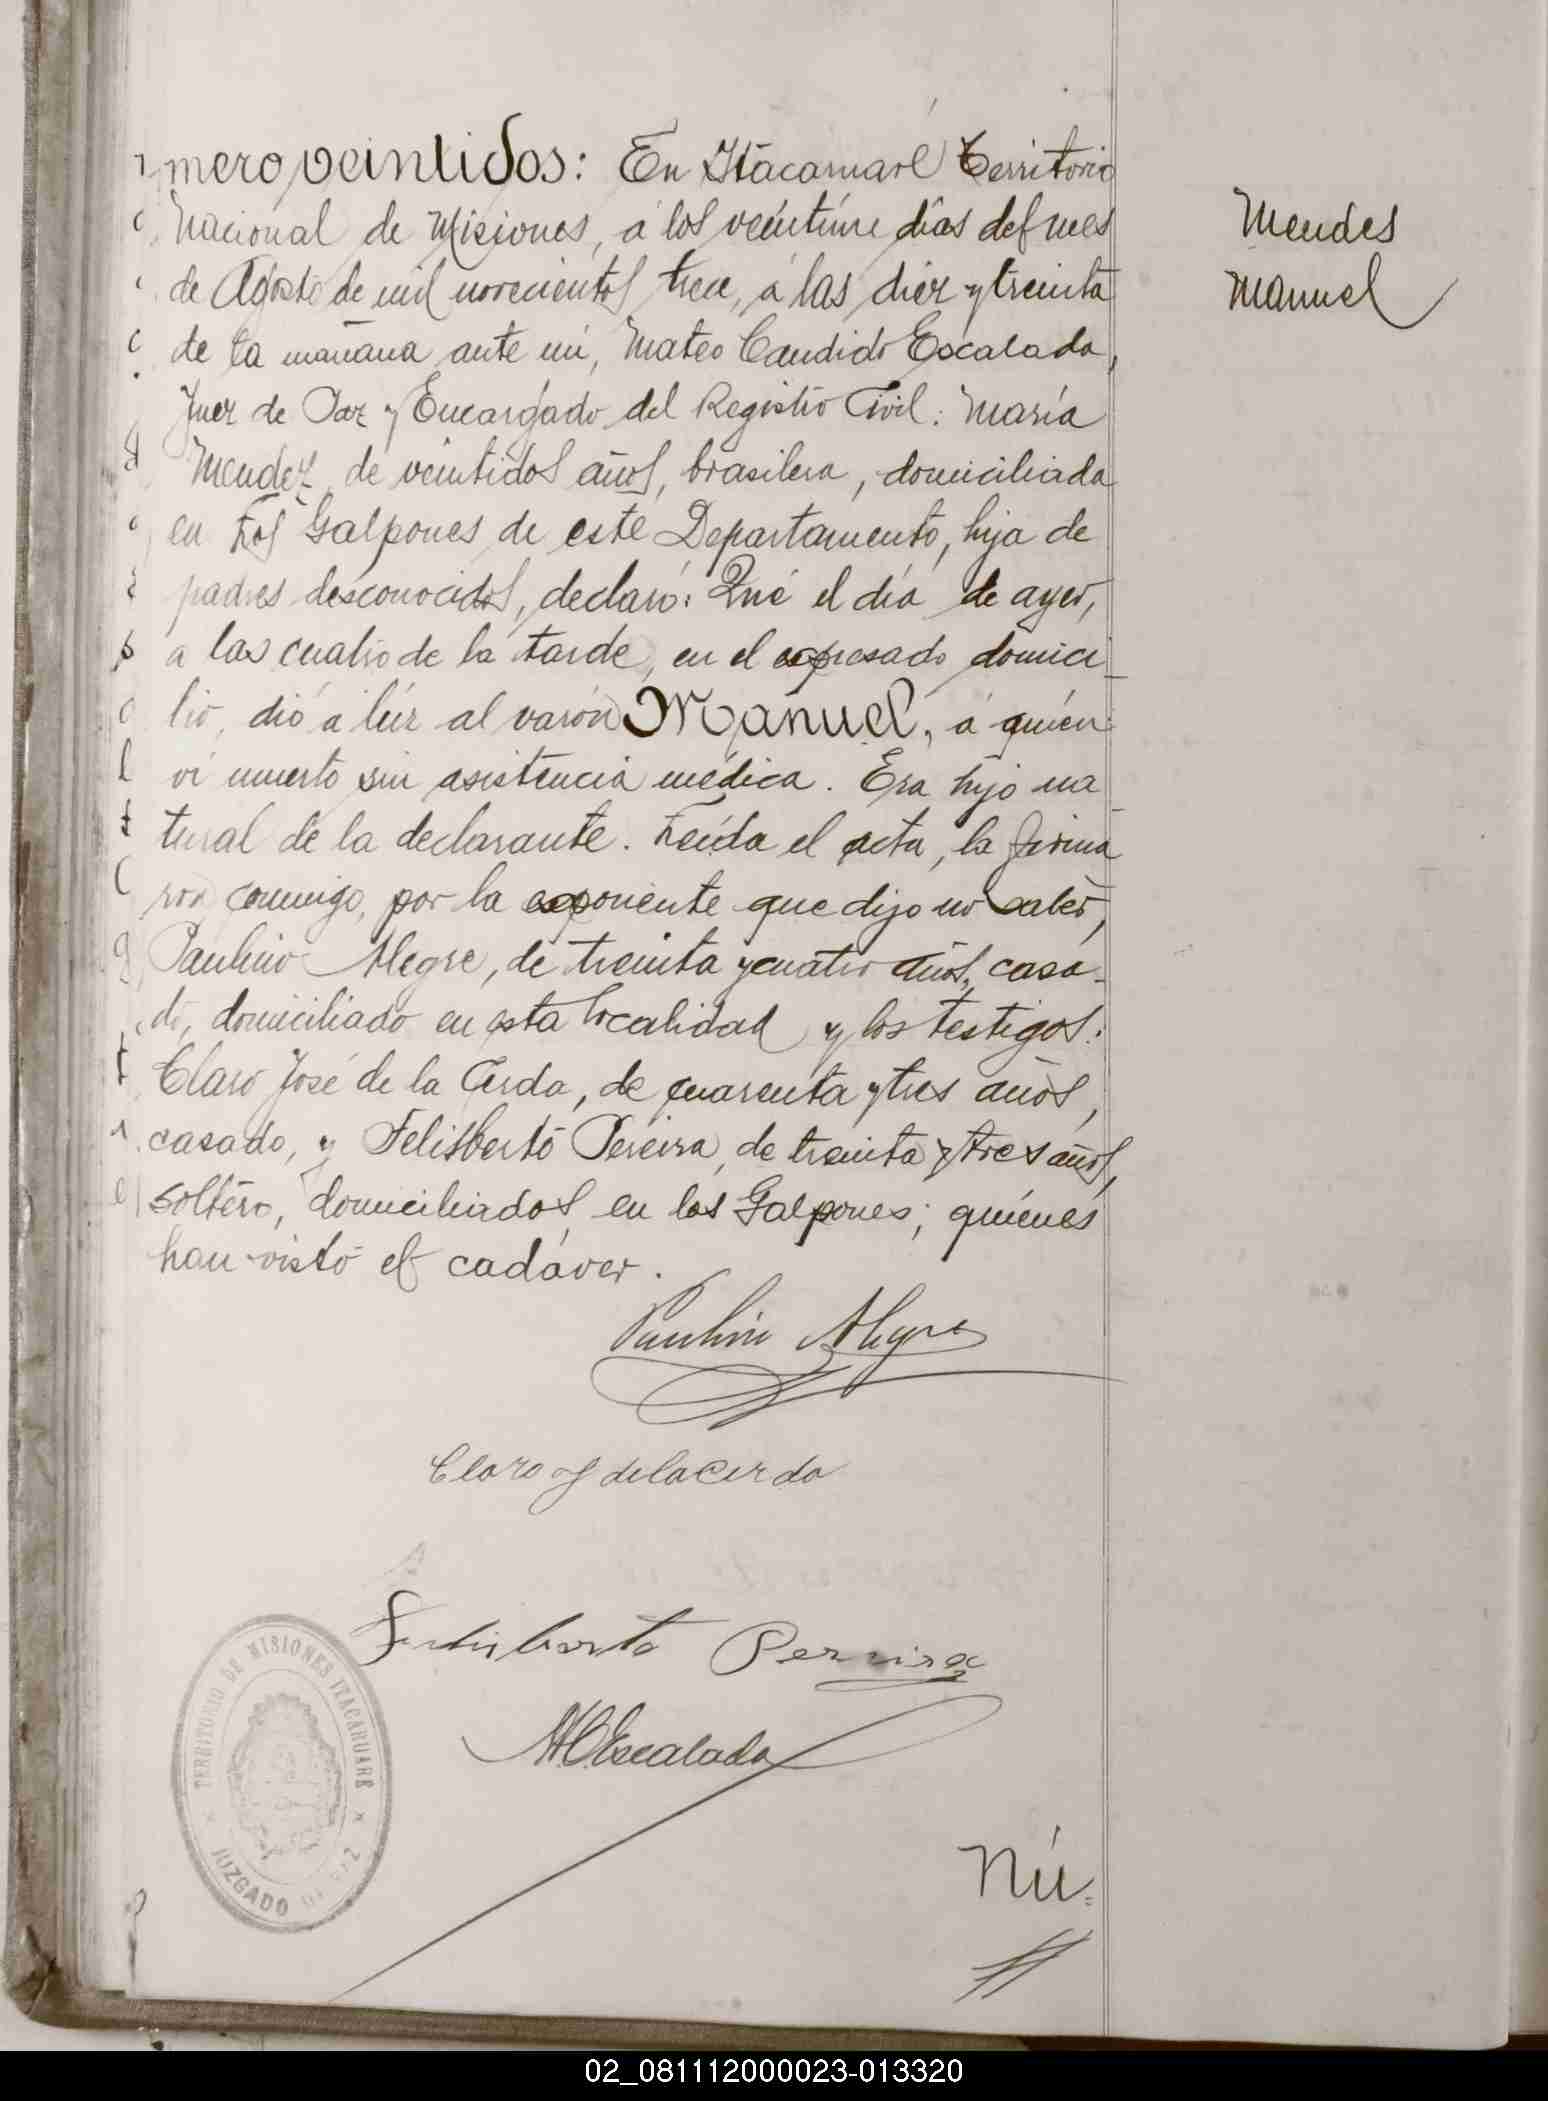 mero veintidos: En Itacaruaré Territorio
Nacional de Misiones, á los veintiun días del mes
de Agosto de mil novecientos trece, á las diez y treinta
de la mañana ante mí, Mateo Candido Escalada,
Juez de Paz y Encargado del Registro Civil: María
Mendez, de veintidos años, brasilera, domiciliada
en Los Galpones de este Departamento, hija de
padres desconocidos, declaró: Qué el día de ayer,
a las cuatro de la tarde, en el expresado domici-
lio, dió á lúz al varón Manuel, á quien
ví muerto sin asistencia médica. Era hijo na
tural de la declarante. Leída el acta, la firma
ron conmigo, por la exponente que dijo no saber,
Paulino Alegre, de treinta y cuatro años, casa-
do, domiciliado en esta localidad y los testigos:
Claro José de la Cerda, de cuarenta y tres años,
casado, y Felisberto Pereira, de treinta y tres años,
soltero, domiciliados en los Galpones; quiénes
han visto el cadáver.
Mendes
Manuel
Paulino Alegre
Claro J de la Cerda
Felisberto Pereira
M.C. Escalada
TERRITORIO DE MISIONES ITACARUARE
JUZGADO DE PAZ
Nú-
02_081112000023-013320